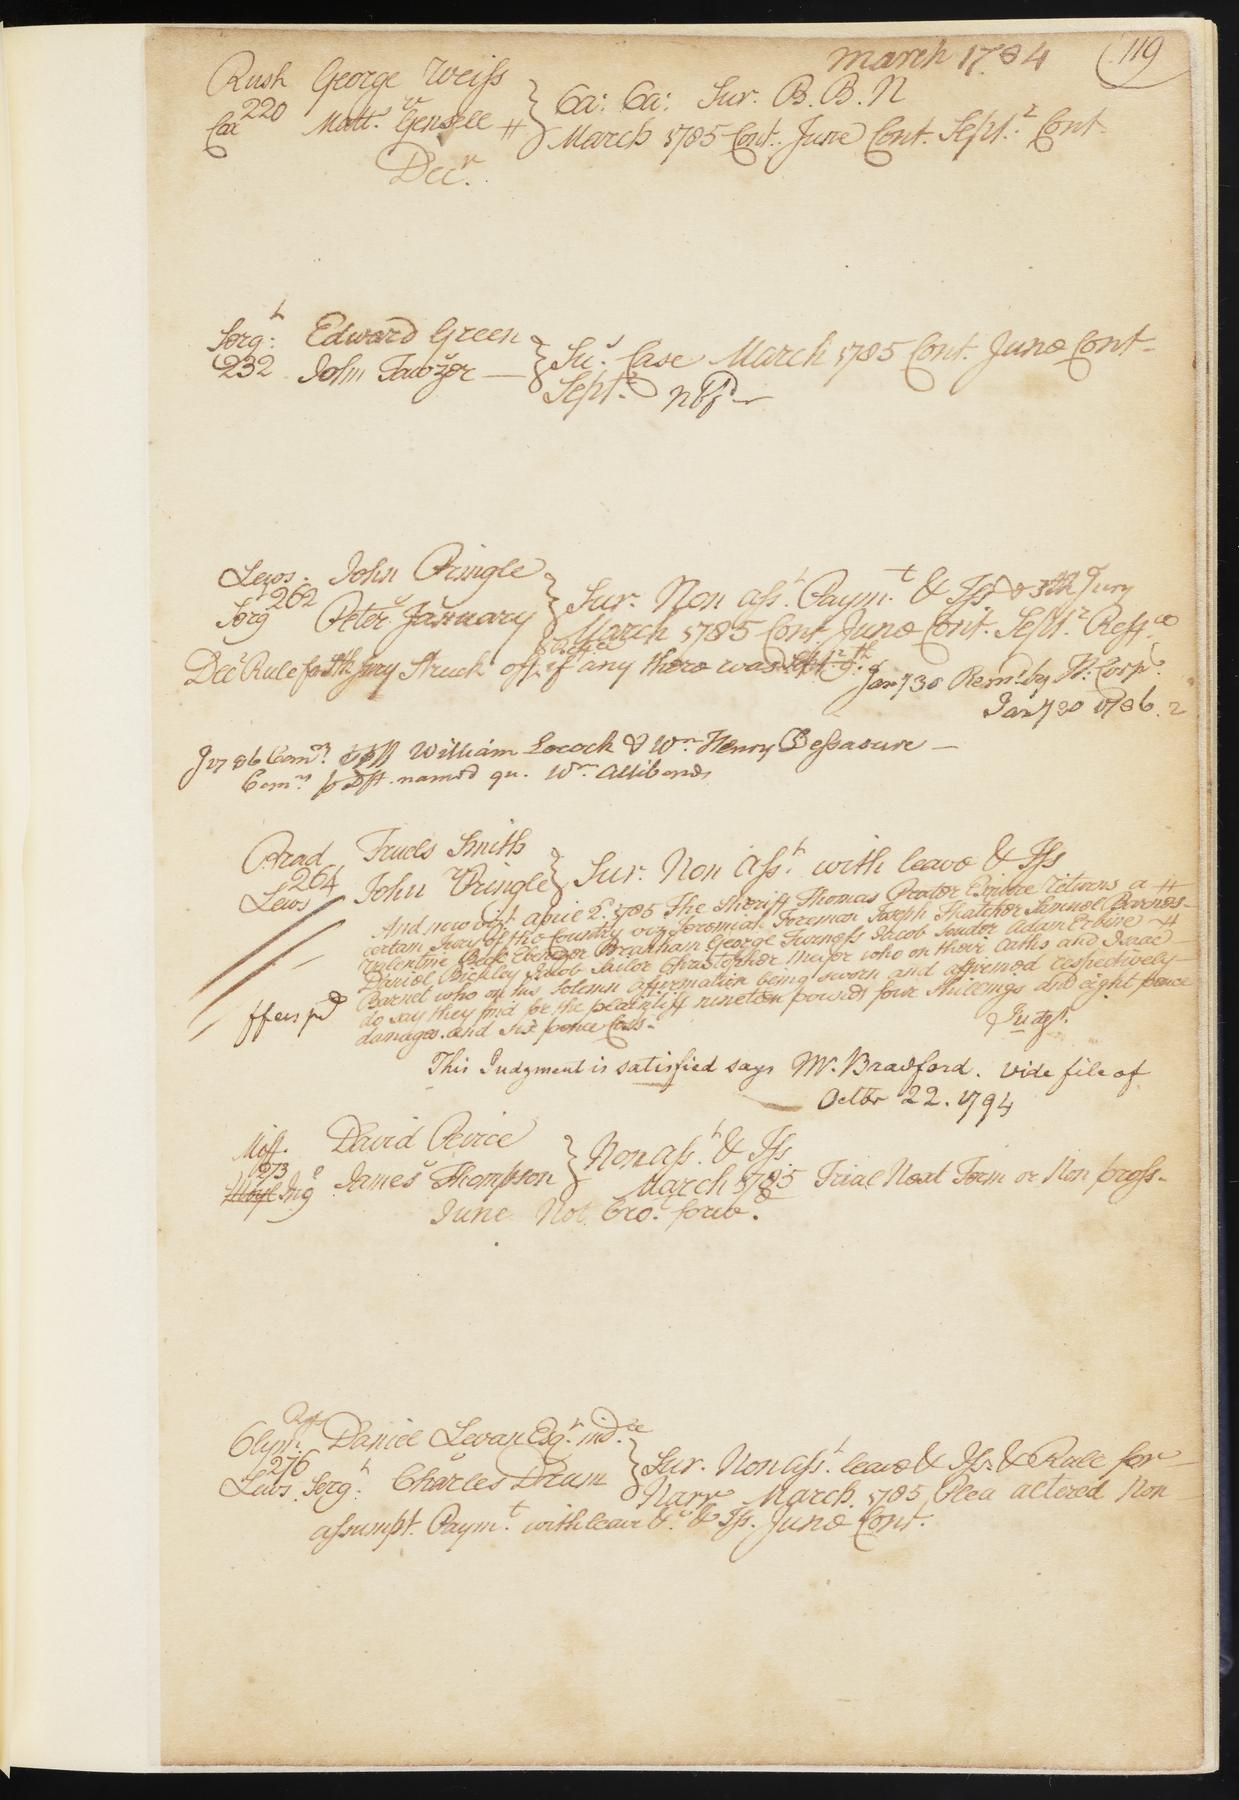 March 1784 (119
Rush George Weiss } Ca: Ca: Sur. B. B. N
Cox 220 Matt. Gensell # } March 1785 Cont. June Cont. Septr. Cont.
Decr.
Sergt. Edward Green } Su. Case March 1785 Cont. June Cont-
232 John Fawzer — } Septr.
Lews. John Pringle } Sur. Non asst. Paymt. & Iss & Jury
262
Serg Peter January } March 1785 Cont. June Cont. Septr.
Decr Rule for jury struck off, if any there was
Jany 30 Remd by H: Corps
Jany 30 1786.
William Locock & Wm Henry Dessasure —
Comn. named qu. Wm. Allibone
Brad Fruds Smith } Sur. Non Asst. with leave & Iss
264
Lews John Pringle }
And now April 2d. 1785 The Sheriff Thomas Proctor Esquire returns a #
certain Jury of the Country viz Jeremiah Foreman Joseph Thatcher Samuel Barnes-
Valentine Ebenezer Branham George Furness Jacob Souder Adam Erbine #
Daniel Bickley Jacob Sailor Christopher Meyer who on their Oaths and Isaac
Barnet who on his solemn affirmation being sworn and affirmed respectively-
do say they find for the plaintiff nineteen pounds four shillings and eight pence
damages. and six pence Costs. Judgt.
ffees pd
This Judgment is satisfied says Mr. Bradford. vide file of
Octbr 22. 1794
Miff. David Peirce } Non asst. & Iss
273
Ingo James Thompson } March 1785 Trial Next Term or Non pross.
June Not bro. forwd.
Clym. Daniel Levan Esqr. indee } Sur. Non asst. leave & Iss. & Rule for
276
Lews. Sergt. Charles Drum } Narr March. 1785 Plea altered Non
assumpt. Paymt. with leave &c & Iss. June Cont.